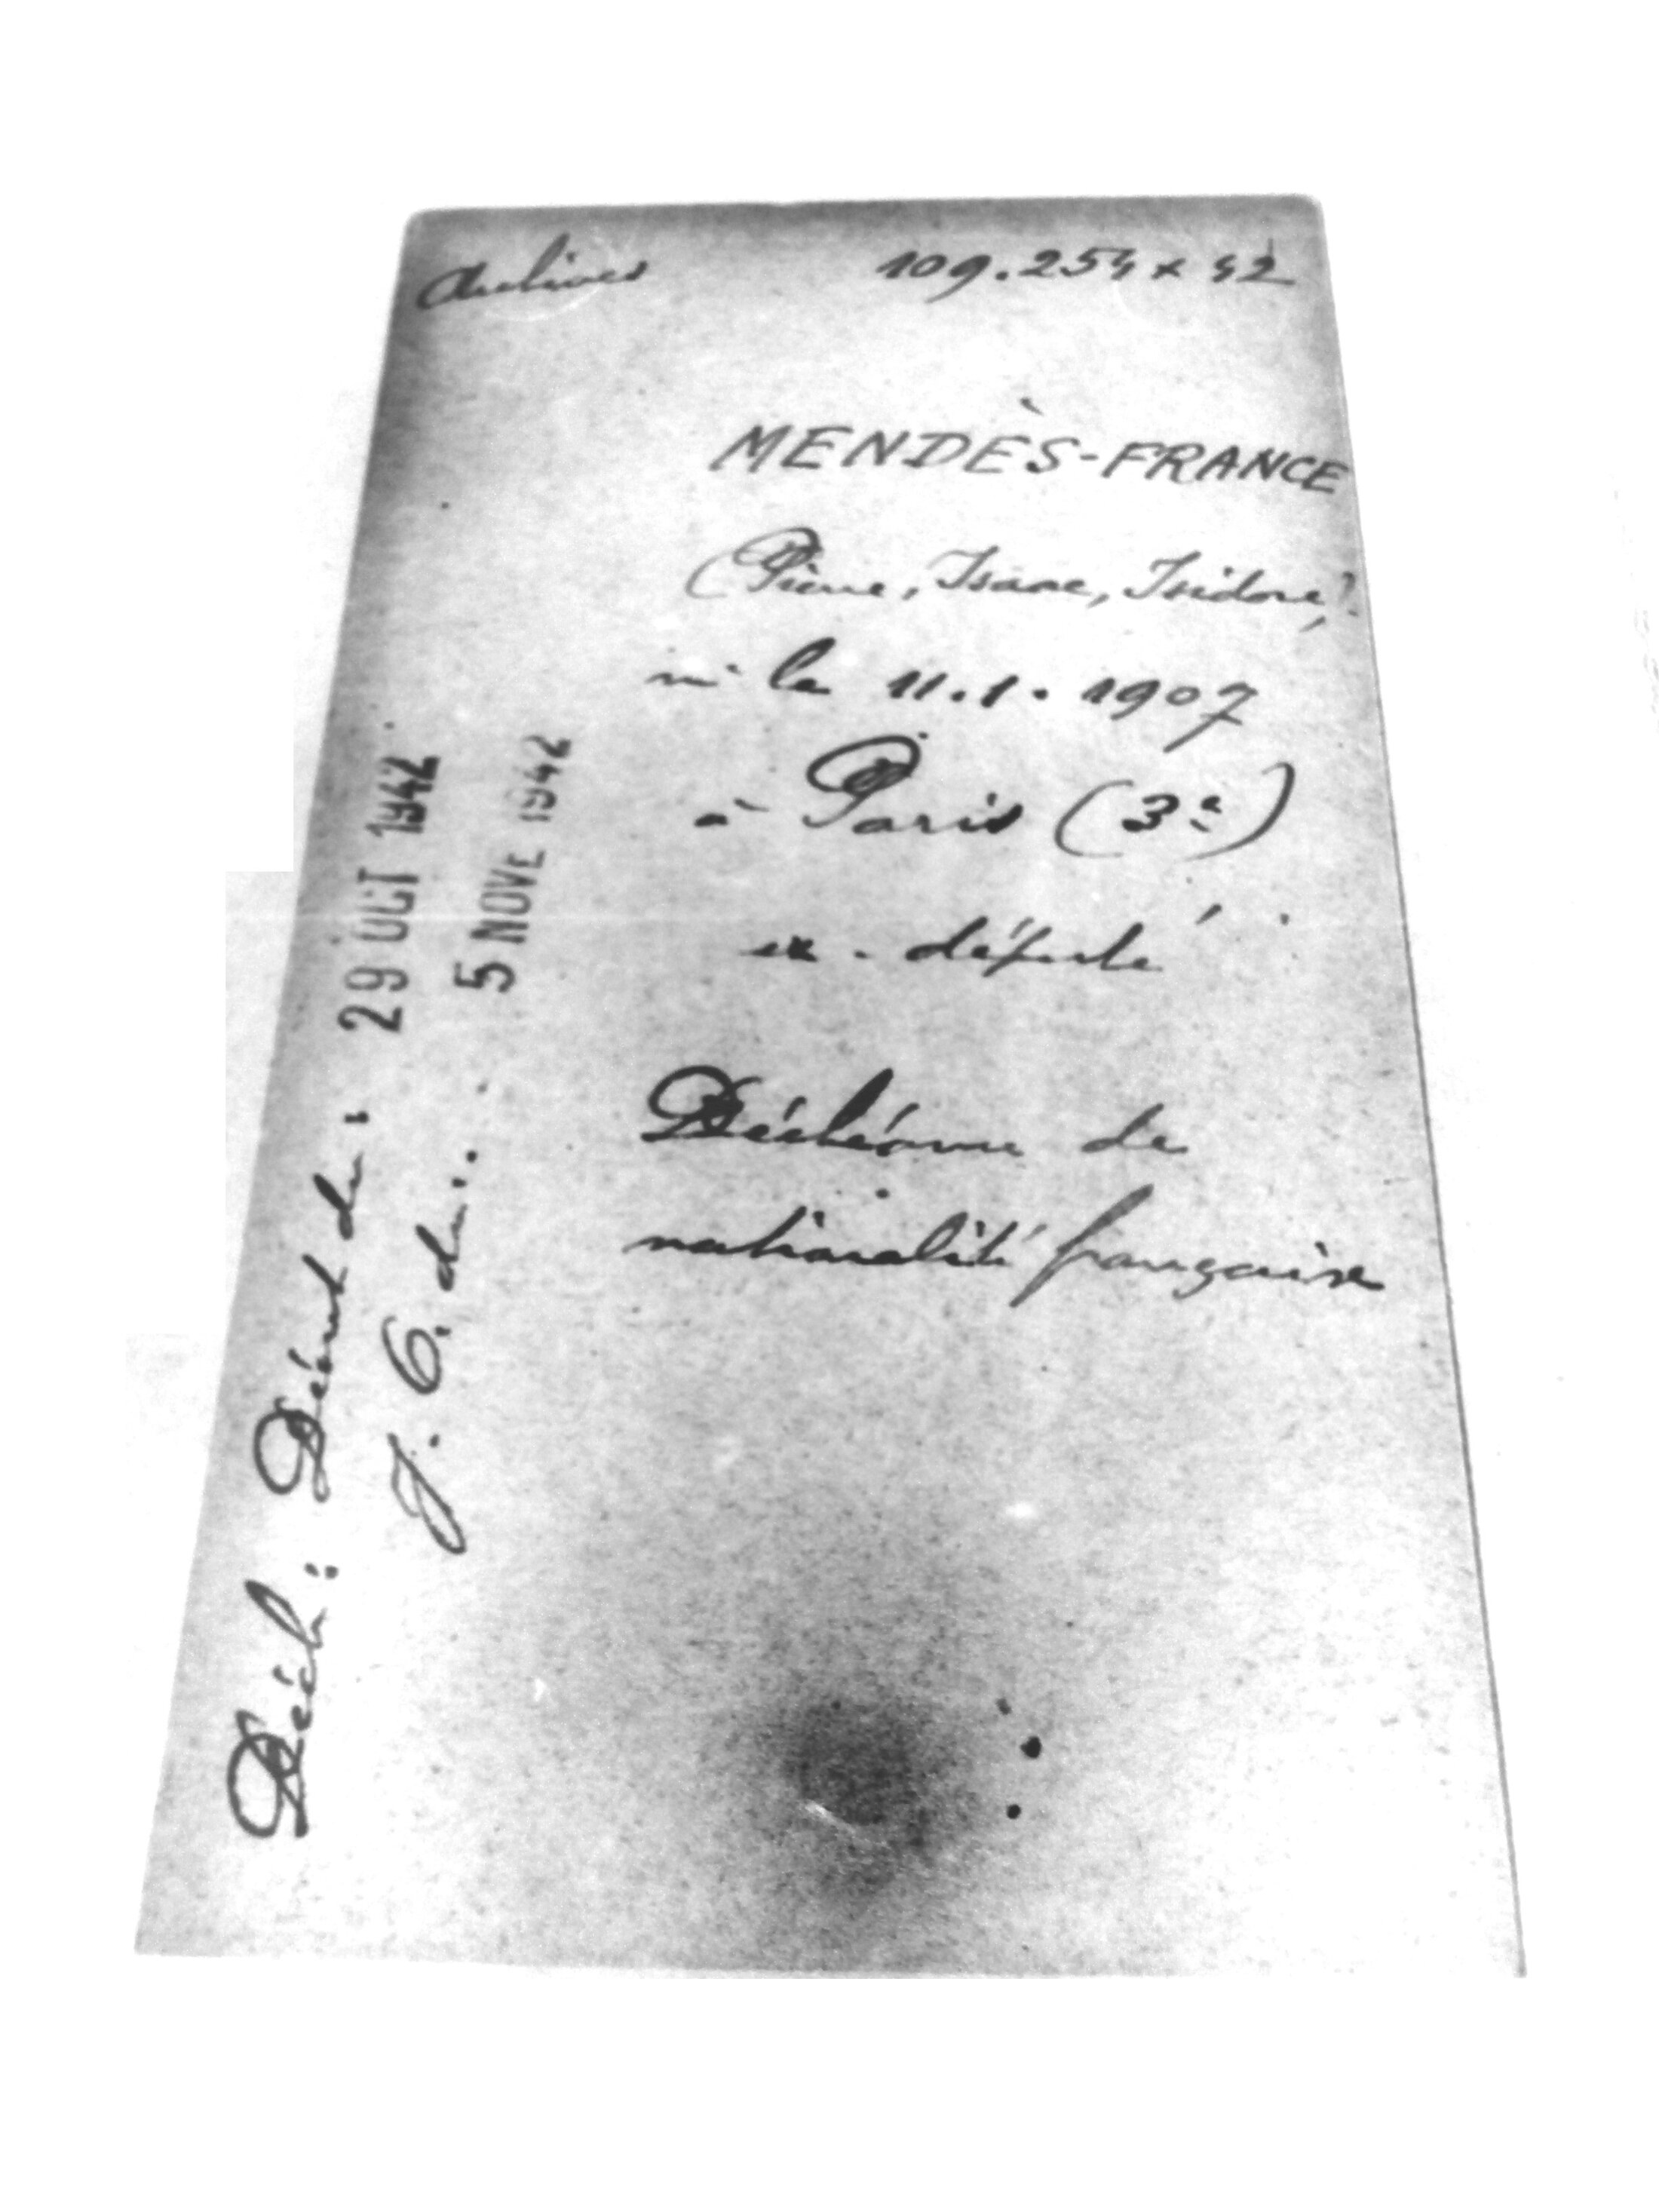 Archives 109.254 x 42
MENDÈS-FRANCE
(Pierre, Isaac, Isidore,).
né le 11.1.1907
à Paris (3e)
ex-député
Déchéance de
nationalité française
Déch: Décret du: 29 OCT 1942
J.O. du: 5 NOVE 1942